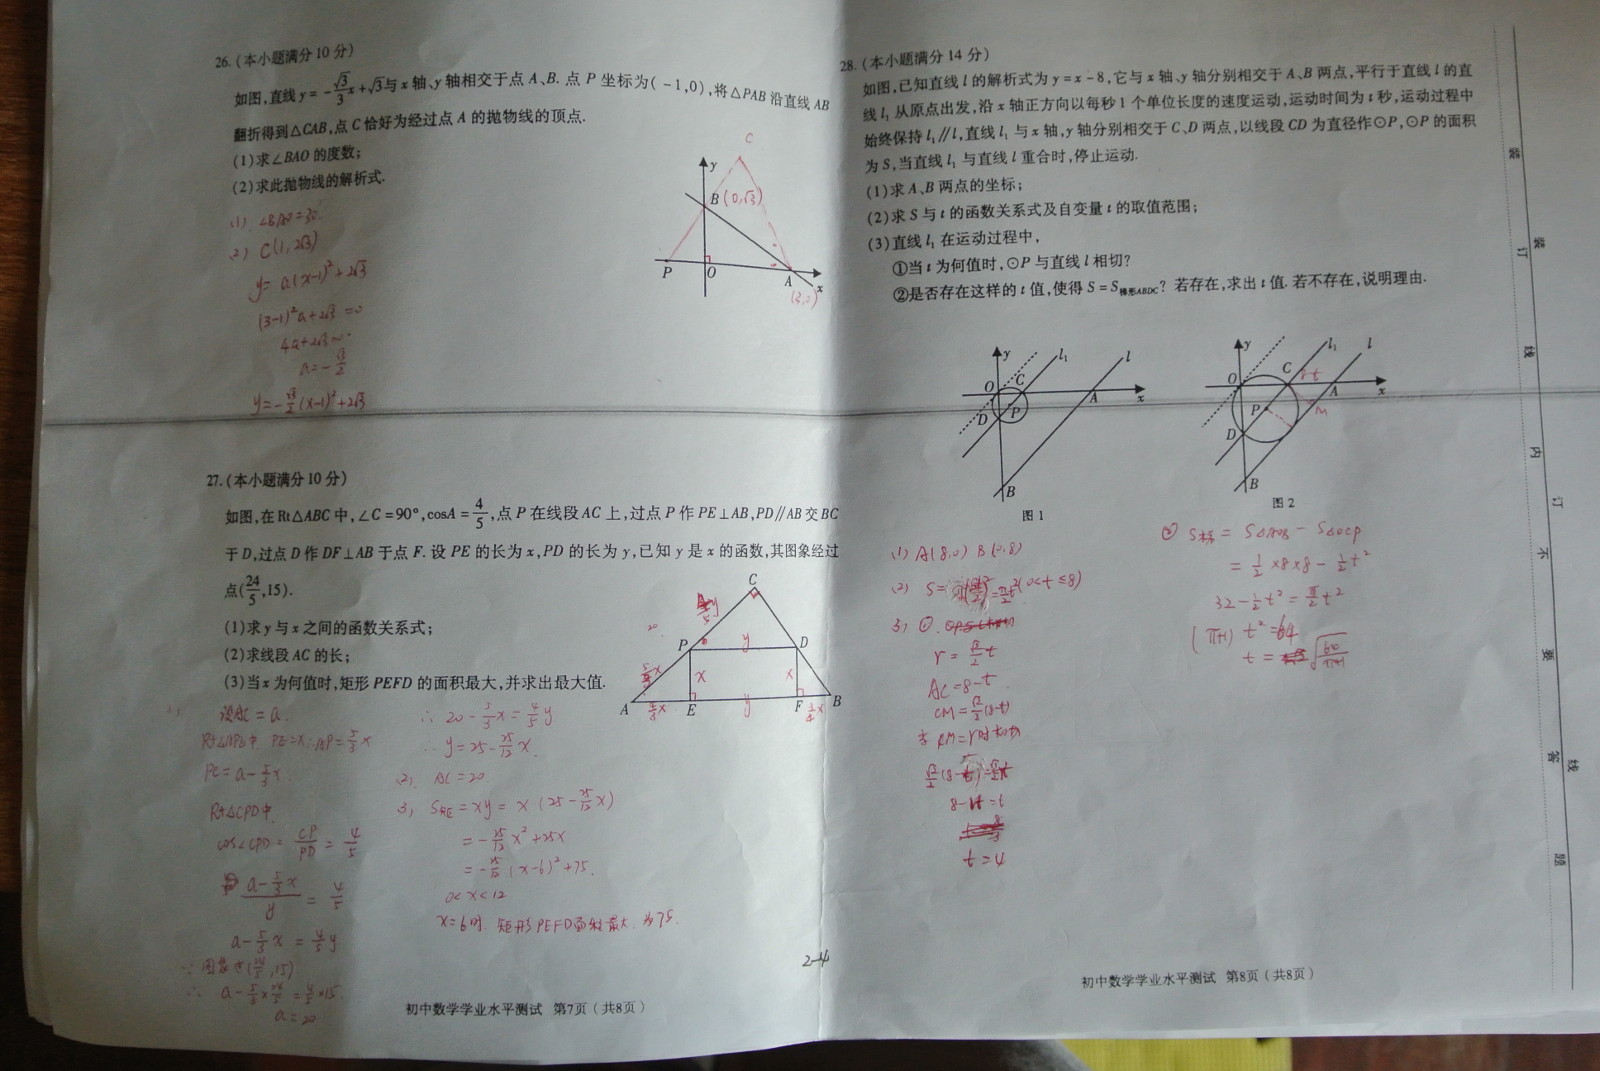 26.(本小题满分10分)
如图,直线y=-√3/3x+√3与x轴、y轴相交于点A、B.点P坐标为(-1,0),将△PAB沿直线AB
翻折得到△CAB,点C恰好为经过点A的抛物线的顶点.
(1)求∠BAO的度数;
(2)求此抛物线的解析式.
C
y
B(0,√3)
P
O
A
x
(3,0)
(1) ∠BAO=30°
(2) C(1,2√3)
y=a(x-1)²+2√3
(3-1)²a+2√3=0
4a+2√3=0
a=-√3/2
y=-√3/2(x-1)²+2√3
27.(本小题满分10分)
如图,在Rt△ABC中,∠C=90°,cosA=4/5,点P在线段AC上,过点P作PE⊥AB,PD∥AB交BC
于D,过点D作DF⊥AB于点F.设PE的长为x,PD的长为y,已知y是x的函数,其图象经过
点(24/5,15).
(1)求y与x之间的函数关系式;
(2)求线段AC的长;
(3)当x为何值时,矩形PEFD的面积最大,并求出最大值.
C
20
P
y
D
5/3x
x
x
A
4/3x
E
y
F
3/4x
B
设AC=a.
Rt△APE中 PE=x∴AP=5/3x
PC=a-5/3x
Rt△CPD中
cos∠CPD=CP/PD=4/5
a-5/3x/y=4/5
a-5/3x=4/5y
∵图象过(24/5,15)
∴ a-5/3×24/5=4/5×15.
a=20
∴ 20-5/3x=4/5y
∴ y=25-25/12x.
(2) AC=20.
3) S矩=xy=x(25-25/12x)
=-25/12x²+25x
=-25/12(x-6)²+75.
0<x<12
x=6时. 矩形PEFD面积最大. 为75.
2-4
初中数学学业水平测试 第7页(共8页)
28.(本小题满分14分)
如图,已知直线l的解析式为y=x-8,它与x轴、y轴分别相交于A、B两点,平行于直线l的直
线l₁从原点出发,沿x轴正方向以每秒1个单位长度的速度运动,运动时间为t秒,运动过程中
始终保持l₁∥l,直线l₁与x轴,y轴分别相交于C、D两点,以线段CD为直径作⊙P,⊙P的面积
为S,当直线l₁与直线l重合时,停止运动.
(1)求A、B两点的坐标;
(2)求S与t的函数关系式及自变量t的取值范围;
(3)直线l₁在运动过程中,
①当t为何值时,⊙P与直线l相切?
②是否存在这样的t值,使得S=S梯形ABDC?若存在,求出t值.若不存在,说明理由.
y
l₁
l
O
C
A
x
D
P
B
图1
y
l₁
l
O
C
8-t
A
x
P
M
D
B
图2
(1) A(8,0) B(0,-8)
(0<t≤8)
3) ①.
r=√2/2t
AC=8-t.
CM=√2/2(8-t)
8-t=t
t=4
② S梯=S△AOB-S△OCD
=1/2×8×8-1/2t²
32-1/2t²=π/2t²
(π+1) t²=64
初中数学学业水平测试 第8页(共8页)
装
订
线
内
不
要
答
题
装
订
线